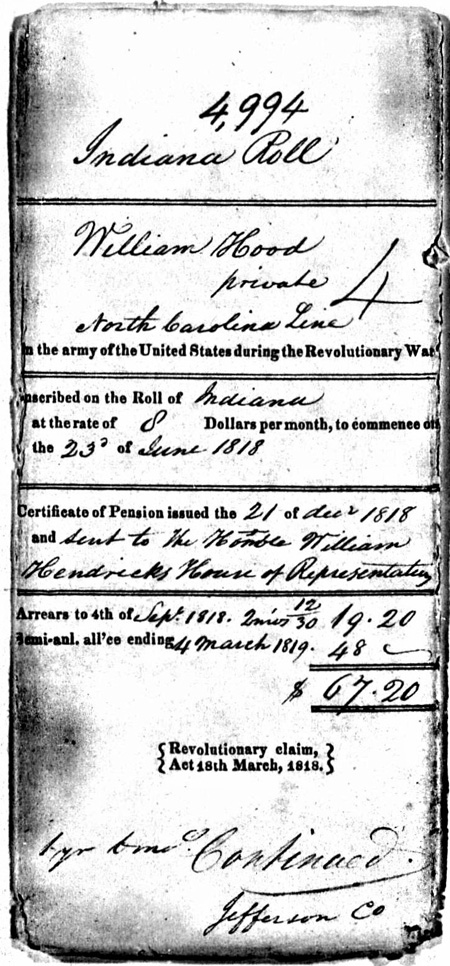 4,994
Indiana Roll
William Hood
private
4
North Carolina Line
in the army of the United States during the Revolutionary War
nscribed on the Roll of Indiana
at the rate of 8 Dollars per month, to commence on
the 23d of June 1818
Certificate of Pension issued the 21 of decr 1818
and sent to the Honble William
Hendricks House of Representatives
Arrears to 4th of Sept. 1818. 2 mos 12/30 19.20
Semi-anl. all'ce ending 4 March 1819. 48
$ 67.20
{Revolutionary claim,
Act 18th March, 1818.}
1 yr 6 mos Continued.
Jefferson Co